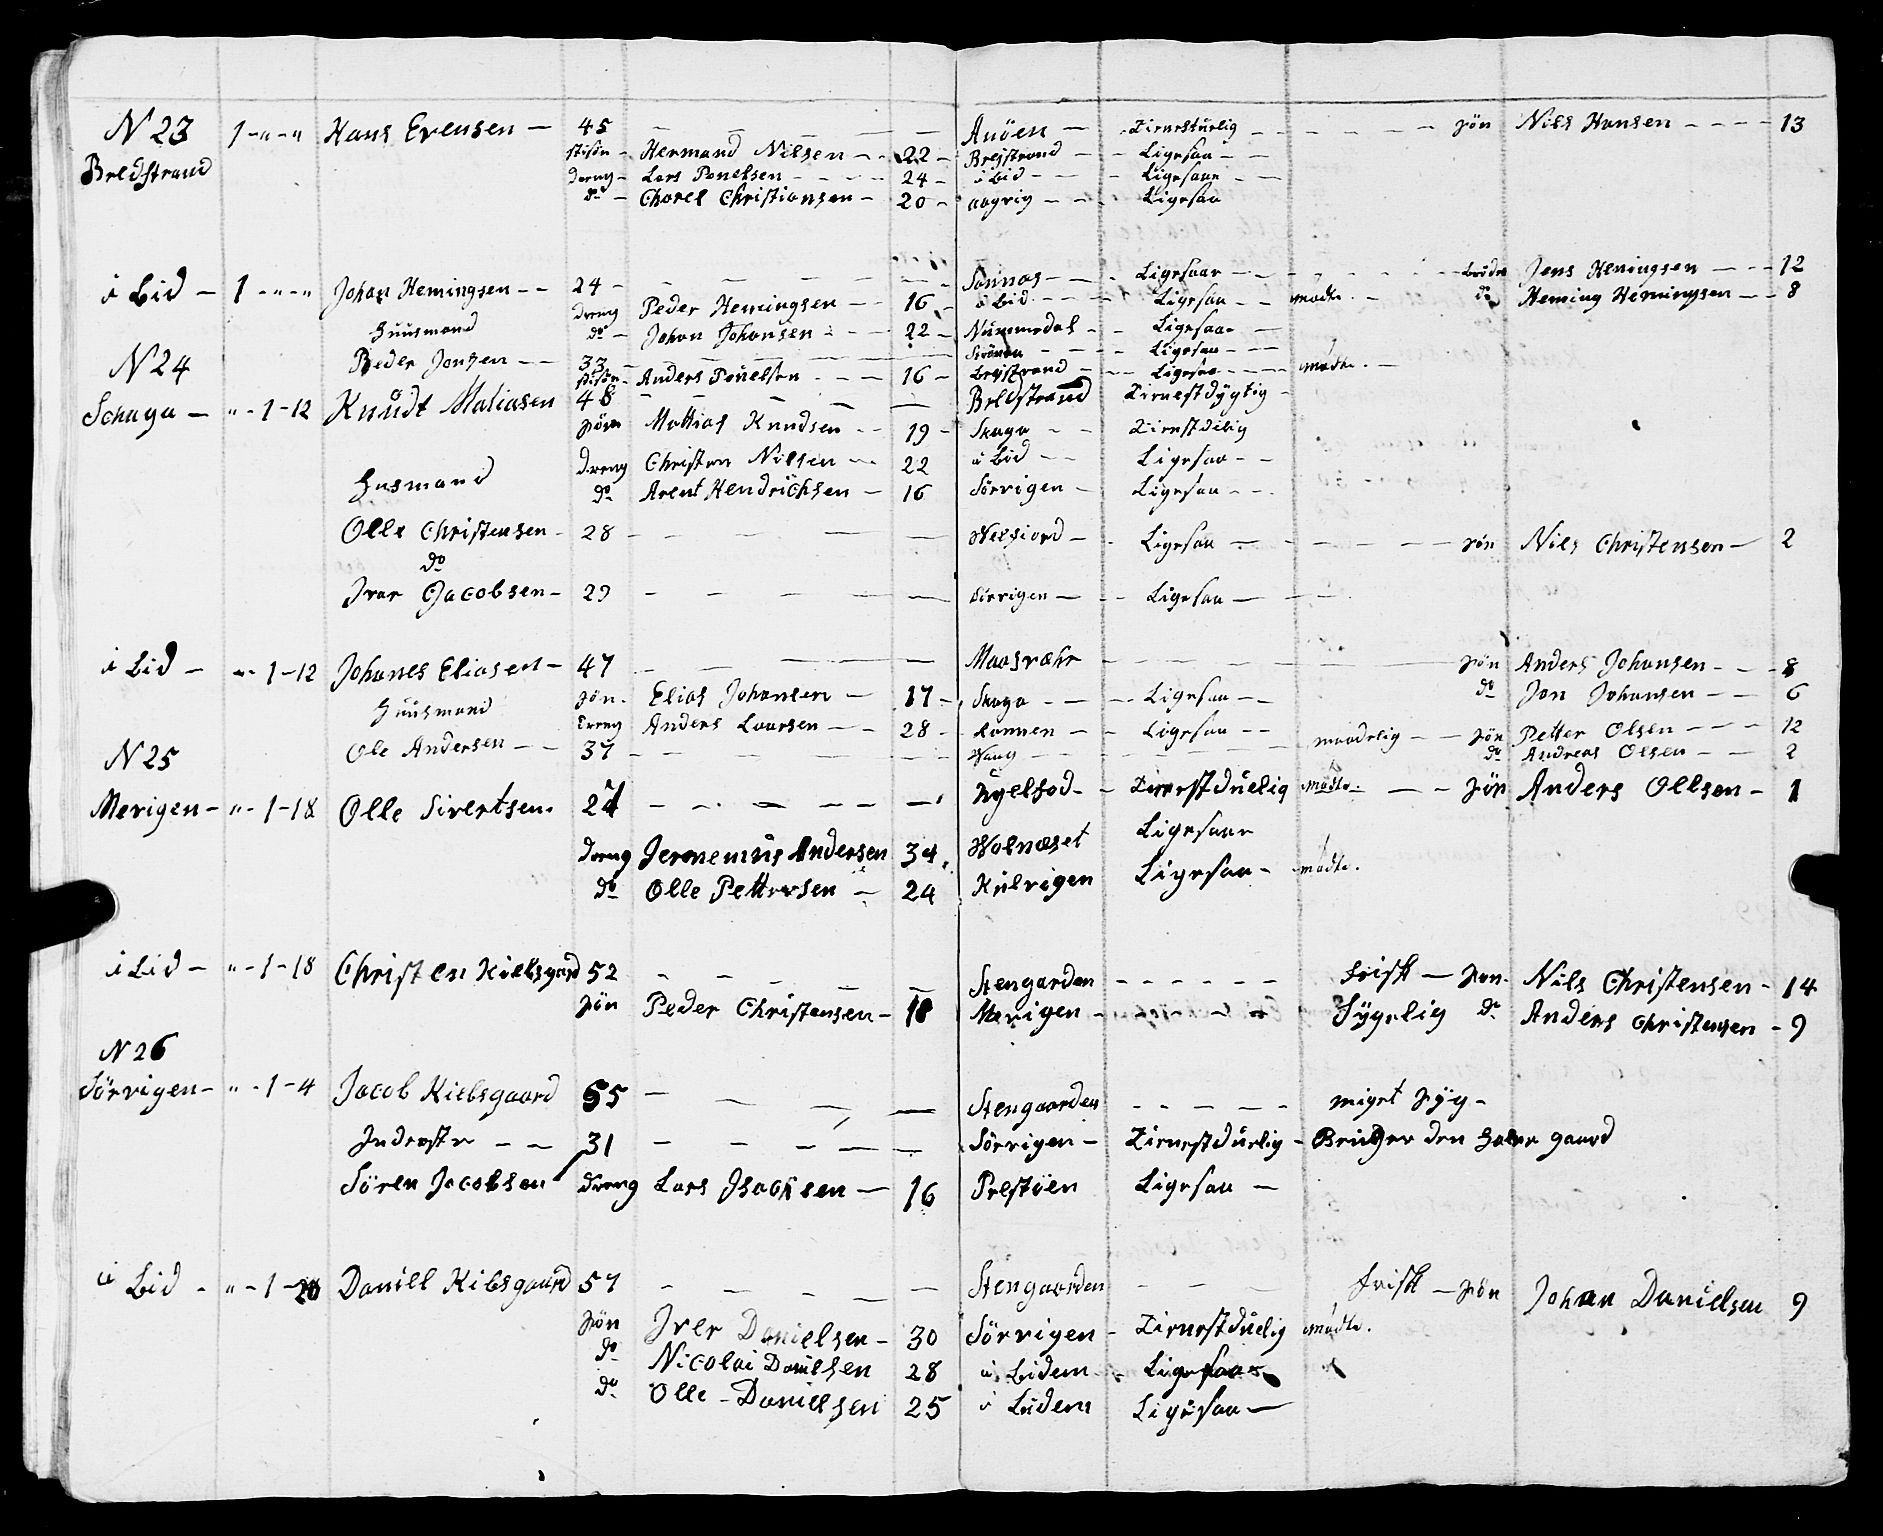 N 23 1 - " - " Hans Evensen - 45 - - - - - Auöen - - Tienestuelig - - - - - - sön Nils Hansen - - - - 13
Bredstrand stisön - Hermand Nilsen - - 22 - Brejstrand - - Ligesaa - -
dreng - Lars Pouelsen - - - - 24 - i Bid - - - - Ligesaa - -
do - Chorel Christiansen - 20 - aagvig - - - Ligesaa
i Bid - 1 - " - " Johan Hemingsen - - 24 - - - - - Sannas - - - Ligesaa - - - - - - brödr Jens Hemingsen - - - 12
dreng Peder Hemingsen - - 16 - i Bid - - - - Ligesaa - - mödte. - do Heming Hemingsen - - 8
Huusmand do - Johan Johansen - - - 22 - Nummedal - - Ligesaa - -
N 24 Peder Jonsen - - 33 - - - - - - Ligesaa - - -
stisön - Anders Pouelsen - - - 16 - Brejstrand - - - Ligesaa - - - - mödte. -
Schaga - " - 1 - 12 Knudt Matiasen 48 - - - - - Bredstrand Tienestdygtig -
sön Mattias Knudsen - - 19 - Skaga - - Tienstdelig
dreng Christen Nilsen - - 22 i Bid - - Ligesaa - -
Husmand do Arent Hendrichsen - 16 Sörvigen - Ligesaa - - -
Olle Christensen - 28 - - - - - Welfiord - - Ligesaa - - - - - sön Nils Christensen - 2
do
Ivar Jacobsen - 29 - - - - - Sörvigen - - - Ligesaa - - -
i Bid - " - 1 - 12 Johanes Eliasen - 47 - - - - - Maasvæhr - - - - - - sön Anders Johansen - - - 8
sön. Elias Johansen - 17 - Skaga - - - - Ligesaa - - do Jon Johansen - - 6
Huusmand Dreng Anders Laarsen - - 28 - Ronnen - - Ligesaa - -
Ole Andersen - - 37 - - - - - - Waag - - - - - maadelig - - sön Petter Olsen - - - 12
N 25 do Andreas Olsen - - 2
Merigen - " - 1 - 18 Olle Sivertsen. 24 - - - - - - Kyelsod - - Tienestduelig mödte. - - - sön Anders Ollsen - 1
dreng Jeronemus Andersen 34. Holmæset Ligesaa
do Olle Pettersen - 24 Kulvigen Ligesaa - mödte.
i Bid - " - 1 - 18 Christen Kielsgard 52 - - - - - Stengarden - - - - - - frisk - sön. Nils Christensen - 14
sön Peder Christensen - 18 Merigen - - - - - Sygelig do Anders Christensen - 9
N 26
Sörvigen - " - 1 - 4 Jacob Kielsgaard 65 - - - - Stengaarden - - - - - miget syg -
Inderste - - 31 - - - - - Sörvigen - Tienestduelig - Bruger den halve gaard
Sören Jacobsen dreng Lars Isachsen - 16 Prestöen Ligesaa -
i Bid - " - 1 - 20 Daniel Kibsgaard 57 - - - - - Stengaarden - - - frisk - sön Johan Danielsen 9
sön Iver Danielsen - 30 Sörvigen - Tienestduelig mödte.
do Nicolai Danielsen 28 i Bidem - - Ligesaa
do Olle - Danielsen 25 i Bidem Ligesaa -